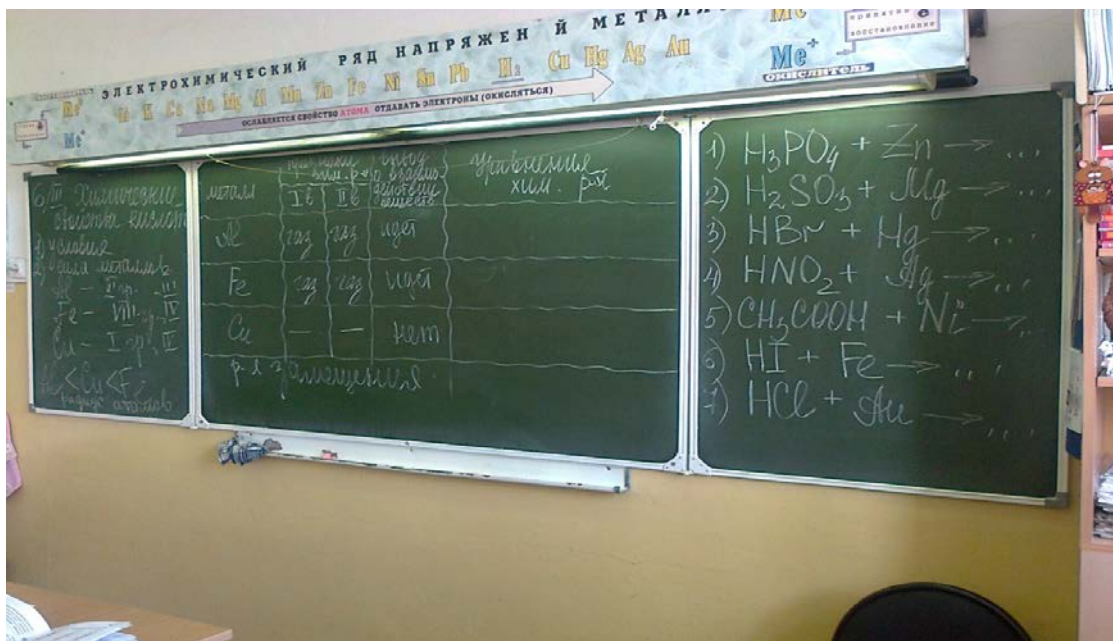 ЭЛЕКТРОХИМИЧЕСКИЙ РЯД НАПРЯЖЕН Й МЕТАЛ
K Ca Na Mg Al Mn Zn Fe Ni Sn Pb H2 Cu Hg Ag Au
ОСЛАБЛЯЕТСЯ СВОЙСТВО АТОМА ОТДАВАТЬ ЭЛЕКТРОНЫ (ОКИСЛЯТЬСЯ)
Me⁺
Me⁺
ОКИСЛИТЕЛЬ
восстановление
б III Химические
свойства кислот
1) Условия
2) металлов
Al – гр. III
Fe – VIII гр., IV
Cu – I гр., IV
Al < Cu < Fe
радиус атомов
металл
I в II в
вывод
о взаимо
действии
веществ
Уравнения
хим. р-й
Al газ газ идёт
Fe газ газ идёт
Cu — — нет
р-я замещения.
1) H₃PO₄ + Zn → ...
2) H₂SO₃ + Mg → ...
3) HBr + Hg → ...
4) HNO₂ + Ag → ...
5) CH₃COOH + Ni → ...
6) HI + Fe → ...
7) HCl + Au → ...